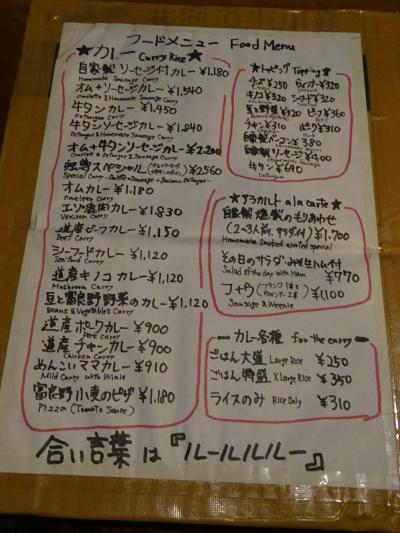 フードメニュー Food Menu
★カレー Curry Rice★
自家製 ソーセージ付カレー ¥1,180
Homemade Sausage Curry
オム+ソーセージカレー ¥1,540
Omelet & Homemade Sausage Curry
牛タンカレー ¥1,450
Oxtongue Curry
牛タンソーセージカレー ¥1,840
Oxtongue & Homemade Sausage Curry
オム+牛タンソーセージカレー ¥2,200
Omelet & Oxtongue & Sausage Curry
スペシャル ¥2,560
オムカレー ¥1,180
Omelet Curry
エゾ鹿肉カレー ¥1,830
Venison Curry
道産ビーフカレー ¥1,150
Beef Curry
シーフードカレー ¥1,120
Seafood Curry
道産キノコカレー ¥1,120
Mushroom Curry
豆と富良野野菜のカレー ¥1,120
Beans & Vegetables Curry
道産ポークカレー ¥900
Pork Curry
道産チキンカレー ¥900
Chicken Curry
めんこいママカレー ¥910
Mild Curry with Winie
富良野小麦のピザ ¥1,180
Pizza (Tomato Sauce)
★トッピング Topping★
チーズ ¥250 ウィンナー ¥320
キノコ ¥320 シーフード ¥320
豆と野菜 ¥320 ビーフ ¥360
チキン ¥310 ポーク ¥310
自家製ベーコン ¥380
自家製ソーセージ ¥400
牛タン ¥690
Oxtongue
★アラカルト a la carte★
自家製 燻製のもりあわせ
(2~3人前、サラダ付) ¥1,700
Homemade Smoked assorted special
その日のサラダ・みそ生ハム付
Salad of the day with Ham ¥770
フォウ ¥1,100
Sausage & Weenie
― カレー各種 for the curry ―
ごはん大盛 Large Rice ¥250
ごはん特盛 X Large Rice ¥350
ライスのみ Rice Only ¥310
合い言葉は『ルールルルー』